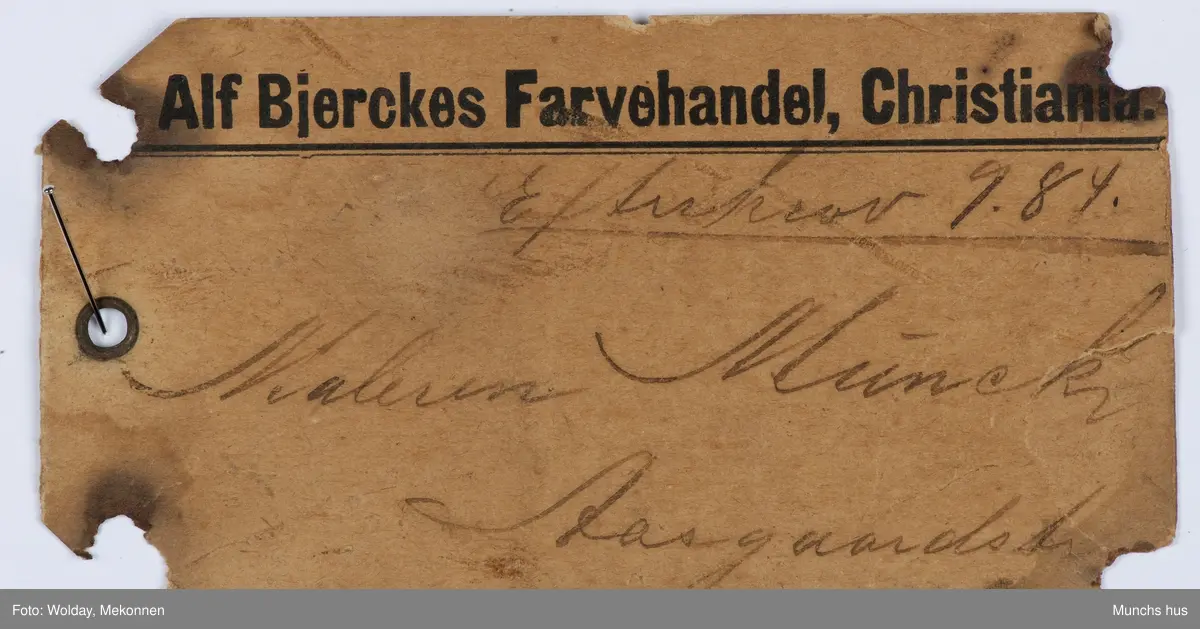 Alf Bjerckes Farvehandel, Christiania.
Efterkrav 9.84.
Maleren Münch
Aasgaardst
Foto: Wolday, Mekonnen
Munchs hus